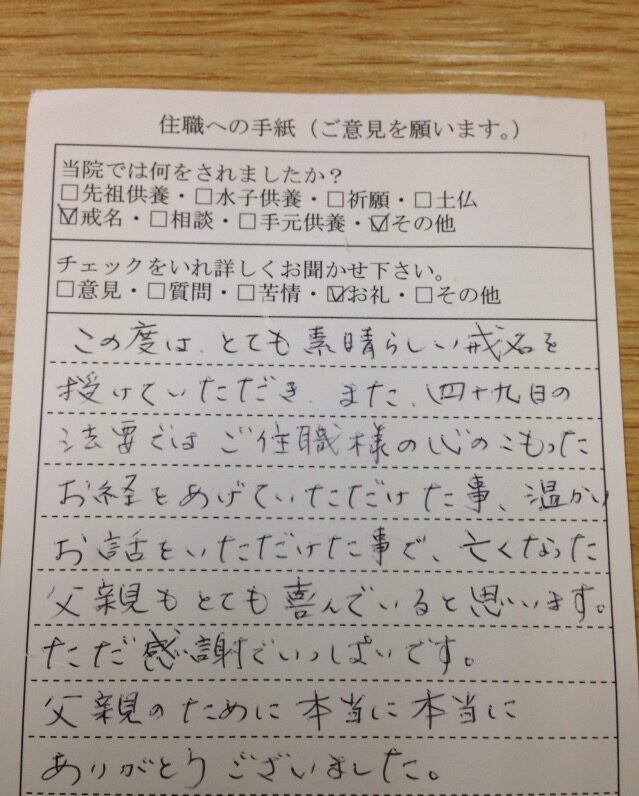 住職への手紙（ご意見を願います。）
当院では何をされましたか？
□先祖供養・□水子供養・□祈願・□土仏
☑戒名・□相談・□手元供養・☑その他
チェックをいれ詳しくお聞かせ下さい。
□意見・□質問・□苦情・☑お礼・□その他
この度は、とても素晴らしい戒名を
授けていただき、また、四十九日の
法要ではご住職様の心のこもった
お経をあげていただけた事、温かい
お話をいただけた事で、亡くなった
父親もとても喜んでいると思います。
ただ感謝でいっぱいです。
父親のために本当に本当に
ありがとうございました。